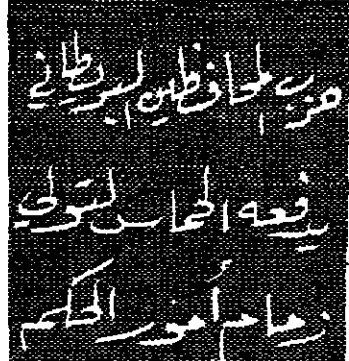 حزب المحافظين البريطاني
يدفعه الحماس لتولي
زمام أمور الحكم